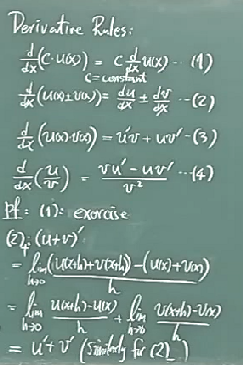 Derivative Rules:
d/dx (c·u(x)) = c d/dx u(x) - (1)
c = constant
d/dx (u(x)±v(x)) = du/dx ± dv/dx --(2)
d/dx (u(x)·v(x)) = u'v + uv' -(3)
d/dx (u/v) = (vu' - uv')/v² --(4)
Pf: (1): exercise
(2)+ (u+v)'
= lim h→0 ((u(x+h)+v(x+h)) - (u(x)+v(x)))/h
= lim h→0 (u(x+h)-u(x))/h + lim h→0 (v(x+h)-v(x))/h
= u'+v' (Similarly for (2)_)